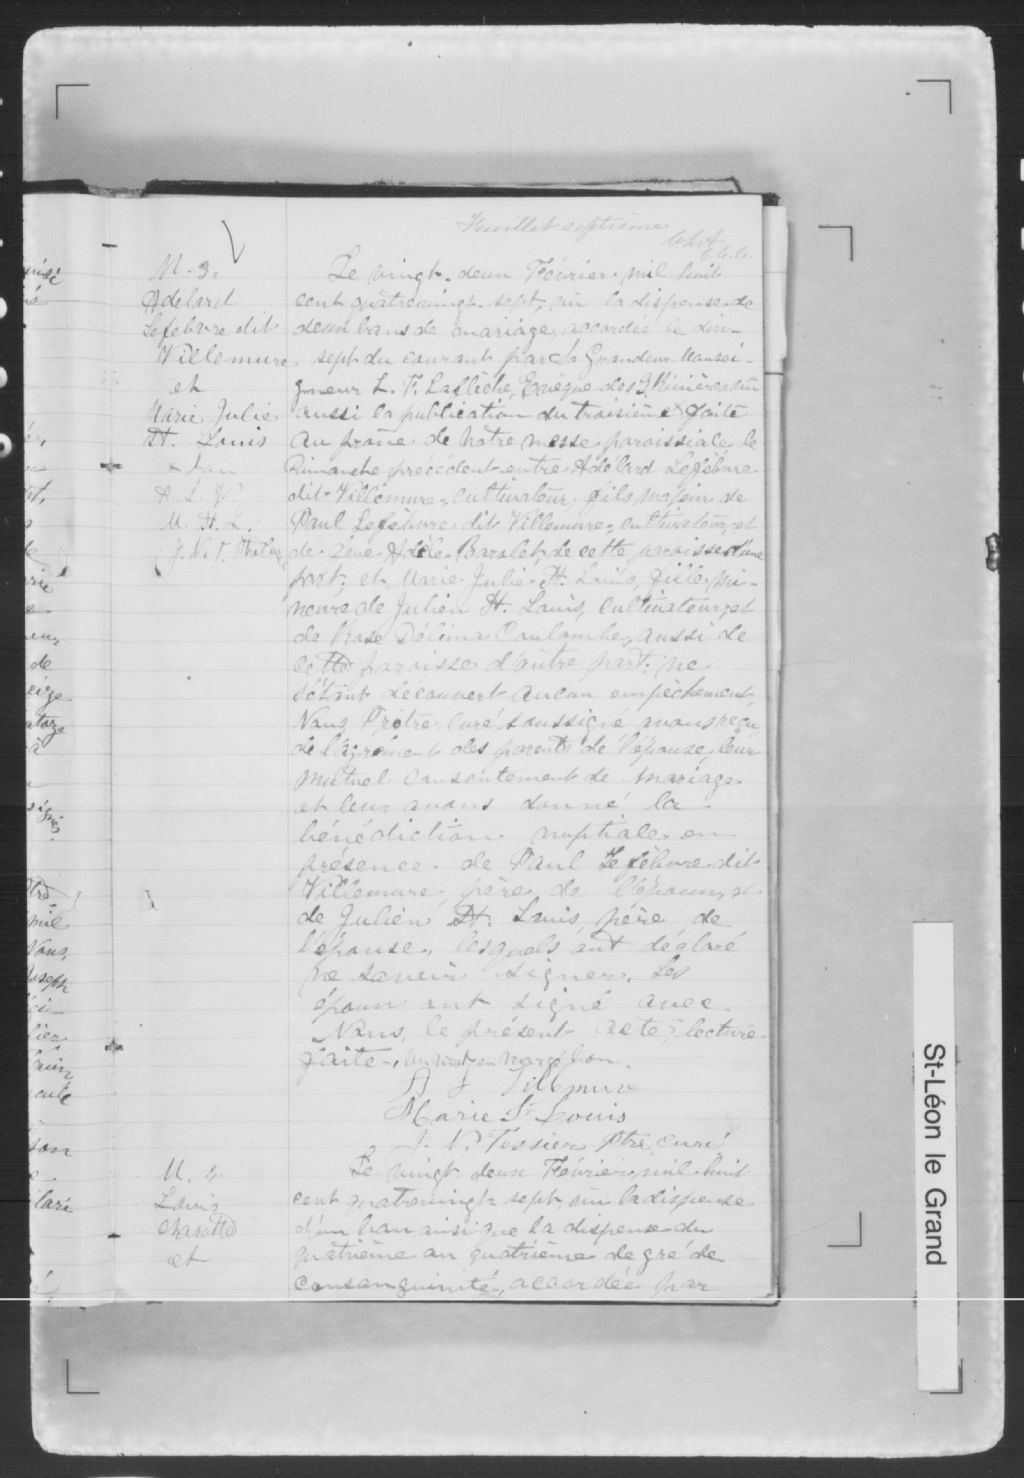 Feuillet septième
M. 3.
Adelard
Lefebvre dit
Villemure
et
Marie Julie
St. Louis
A. L. V.
M. St. L.
J. N. T. Ptre
Le vingt-deux Février mil huit
cent quatrevingt-sept, vu la dispense de
deux bans de mariage, accordée le dix-
sept du courant par Sa Grandeur Monsei-
gneur L. F. Laflèche, Evêque des 3 Rivières, vu
aussi la publication du troisième faite
au prône de notre messe paroissiale le
Dimanche précédent entre Adélard Lefebvre
dit Villemure, cultivateur, fils majeur de
Paul Lefebvre dit Villemure, cultivateur, et
de Adèle de cette paroisse d'une
part; et Marie Julie St. Louis, fille mi-
neure de Julien St. Louis, cultivateur, et
de Rose Délima Coulombe, aussi de
cette paroisse d'autre part; ne
s'étant découvert aucun empêchement
Nous Prêtre, curé soussigné avons reçu,
de l'agrément des parents de l'épouse, leur
mutuel consentement de mariage
et leur avons donné la
bénédiction nuptiale en
présence de Paul Lefebvre dit
Villemure, père de l'époux, et
de Julien St. Louis, père de
l'épouse, lesquels ont déclaré
ne savoir signer. Les
époux ont signé avec
Nous, le présent acte, lecture
faite. Un mot en marge bon.
A L Villemure
Marie St Louis
J. N. Tessier Ptre curé
M. 4.
Louis
Charette
et
Le vingt deux Février mil huit
cent quatrevingt sept, vu la dispense
d'un ban ainsi que la dispense du
quatrième au quatrième degré de
consanguinité, accordée par
St-Léon le Grand